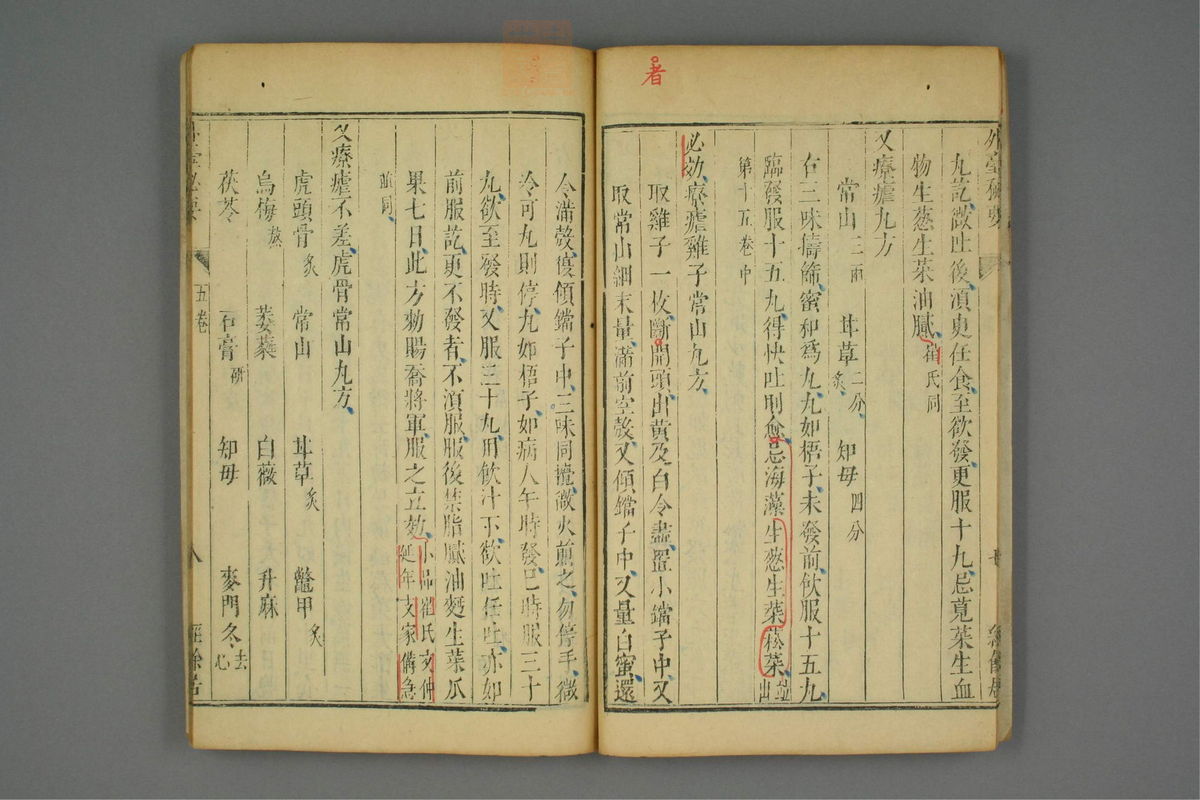 者
丸訖微吐後須臾任食至欲發更服十丸忌莧菜生血
物生葱生菜油膩崔氏同
又療瘧丸方
常山三兩 甘草二分炙 知母四分
右三味擣篩蜜和為丸丸如梧子未發前飲服十五丸
臨發服十五丸得快吐則愈忌海藻生葱生菜菘菜並出
第十五卷中
必効療瘧雞子常山丸方
取雞子一枚斷開頭出黄及白令盡置小鐺子中又
取常山細末量滿前空殼又傾鐺子中又量白蜜還
令滿殼復傾鐺子中三味同攪微火煎之勿停手微
冷可丸則停丸如梧子如病人午時發巳時服三十
丸欲至發時又服三十丸用飲汁下欲吐任吐亦如
前服訖更不發者不須服服後禁脂膩油麪生菜瓜
果七日此方勅賜喬將軍服之立効小品崔氏文仲延年支家備急
並同
又療瘧不差虎骨常山丸方
虎頭骨炙 常山 甘草炙 鼈甲炙
烏梅熬 萎蕤 白薇 升麻
茯苓 石膏研 知母 麥門冬去心
外臺秘要
五卷
八
經餘居